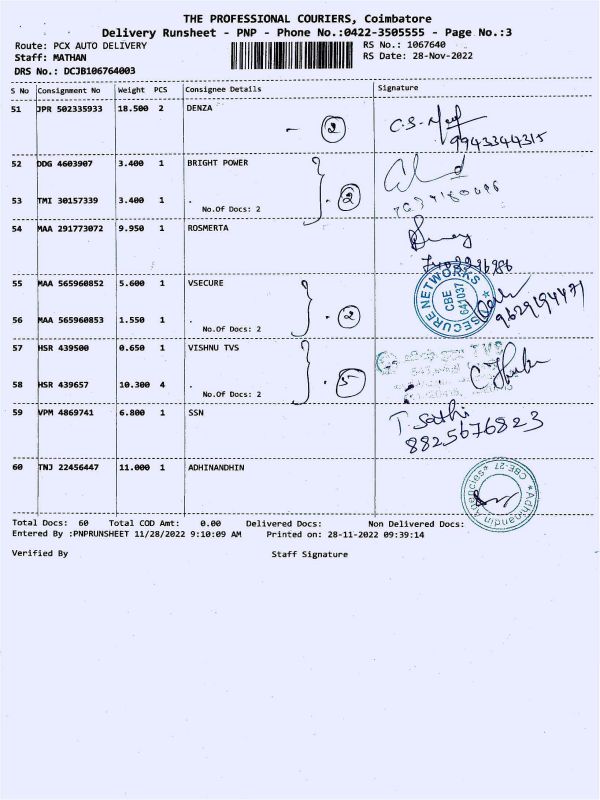 THE PROFESSIONAL COURIERS, Coimbatore
Delivery Runsheet - PNP - Phone No.:0422-3505555 - Page No.:3
Route: PCX AUTO DELIVERY
RS No.: 1067640
Staff: MATHAN
RS Date: 28-Nov-2022
DRS No.: DCJB106764003
S No Consignment No Weight PCS Consignee Details Signature
51 JPR 502335933 18.500 2 DENZA
- 2
9943344315
52 DDG 4603907 3.400 1 BRIGHT POWER
53 TMI 30157339 3.400 1 .
No.Of Docs: 2
2
54 MAA 291773072 9.950 1 ROSMERTA
55 MAA 565960852 5.600 1 VSECURE
SECURE NETWORKS
CBE
641037
9629194471
56 MAA 565960853 1.550 1 .
No.Of Docs: 2
2
57 HSR 439500 0.650 1 VISHNU TVS
TVS
58 HSR 439657 10.300 4 .
No.Of Docs: 2
5
59 VPM 4869741 6.800 1 SSN
T. Sathi
8825676823
60 TNJ 22456447 11.000 1 ADHINANDHIN
CBE-27
Adhinandin Agencies
Total Docs: 60 Total COD Amt: 0.00 Delivered Docs: Non Delivered Docs:
Entered By :PNPRUNSHEET 11/28/2022 9:10:09 AM Printed on: 28-11-2022 09:39:14
Verified By Staff Signature